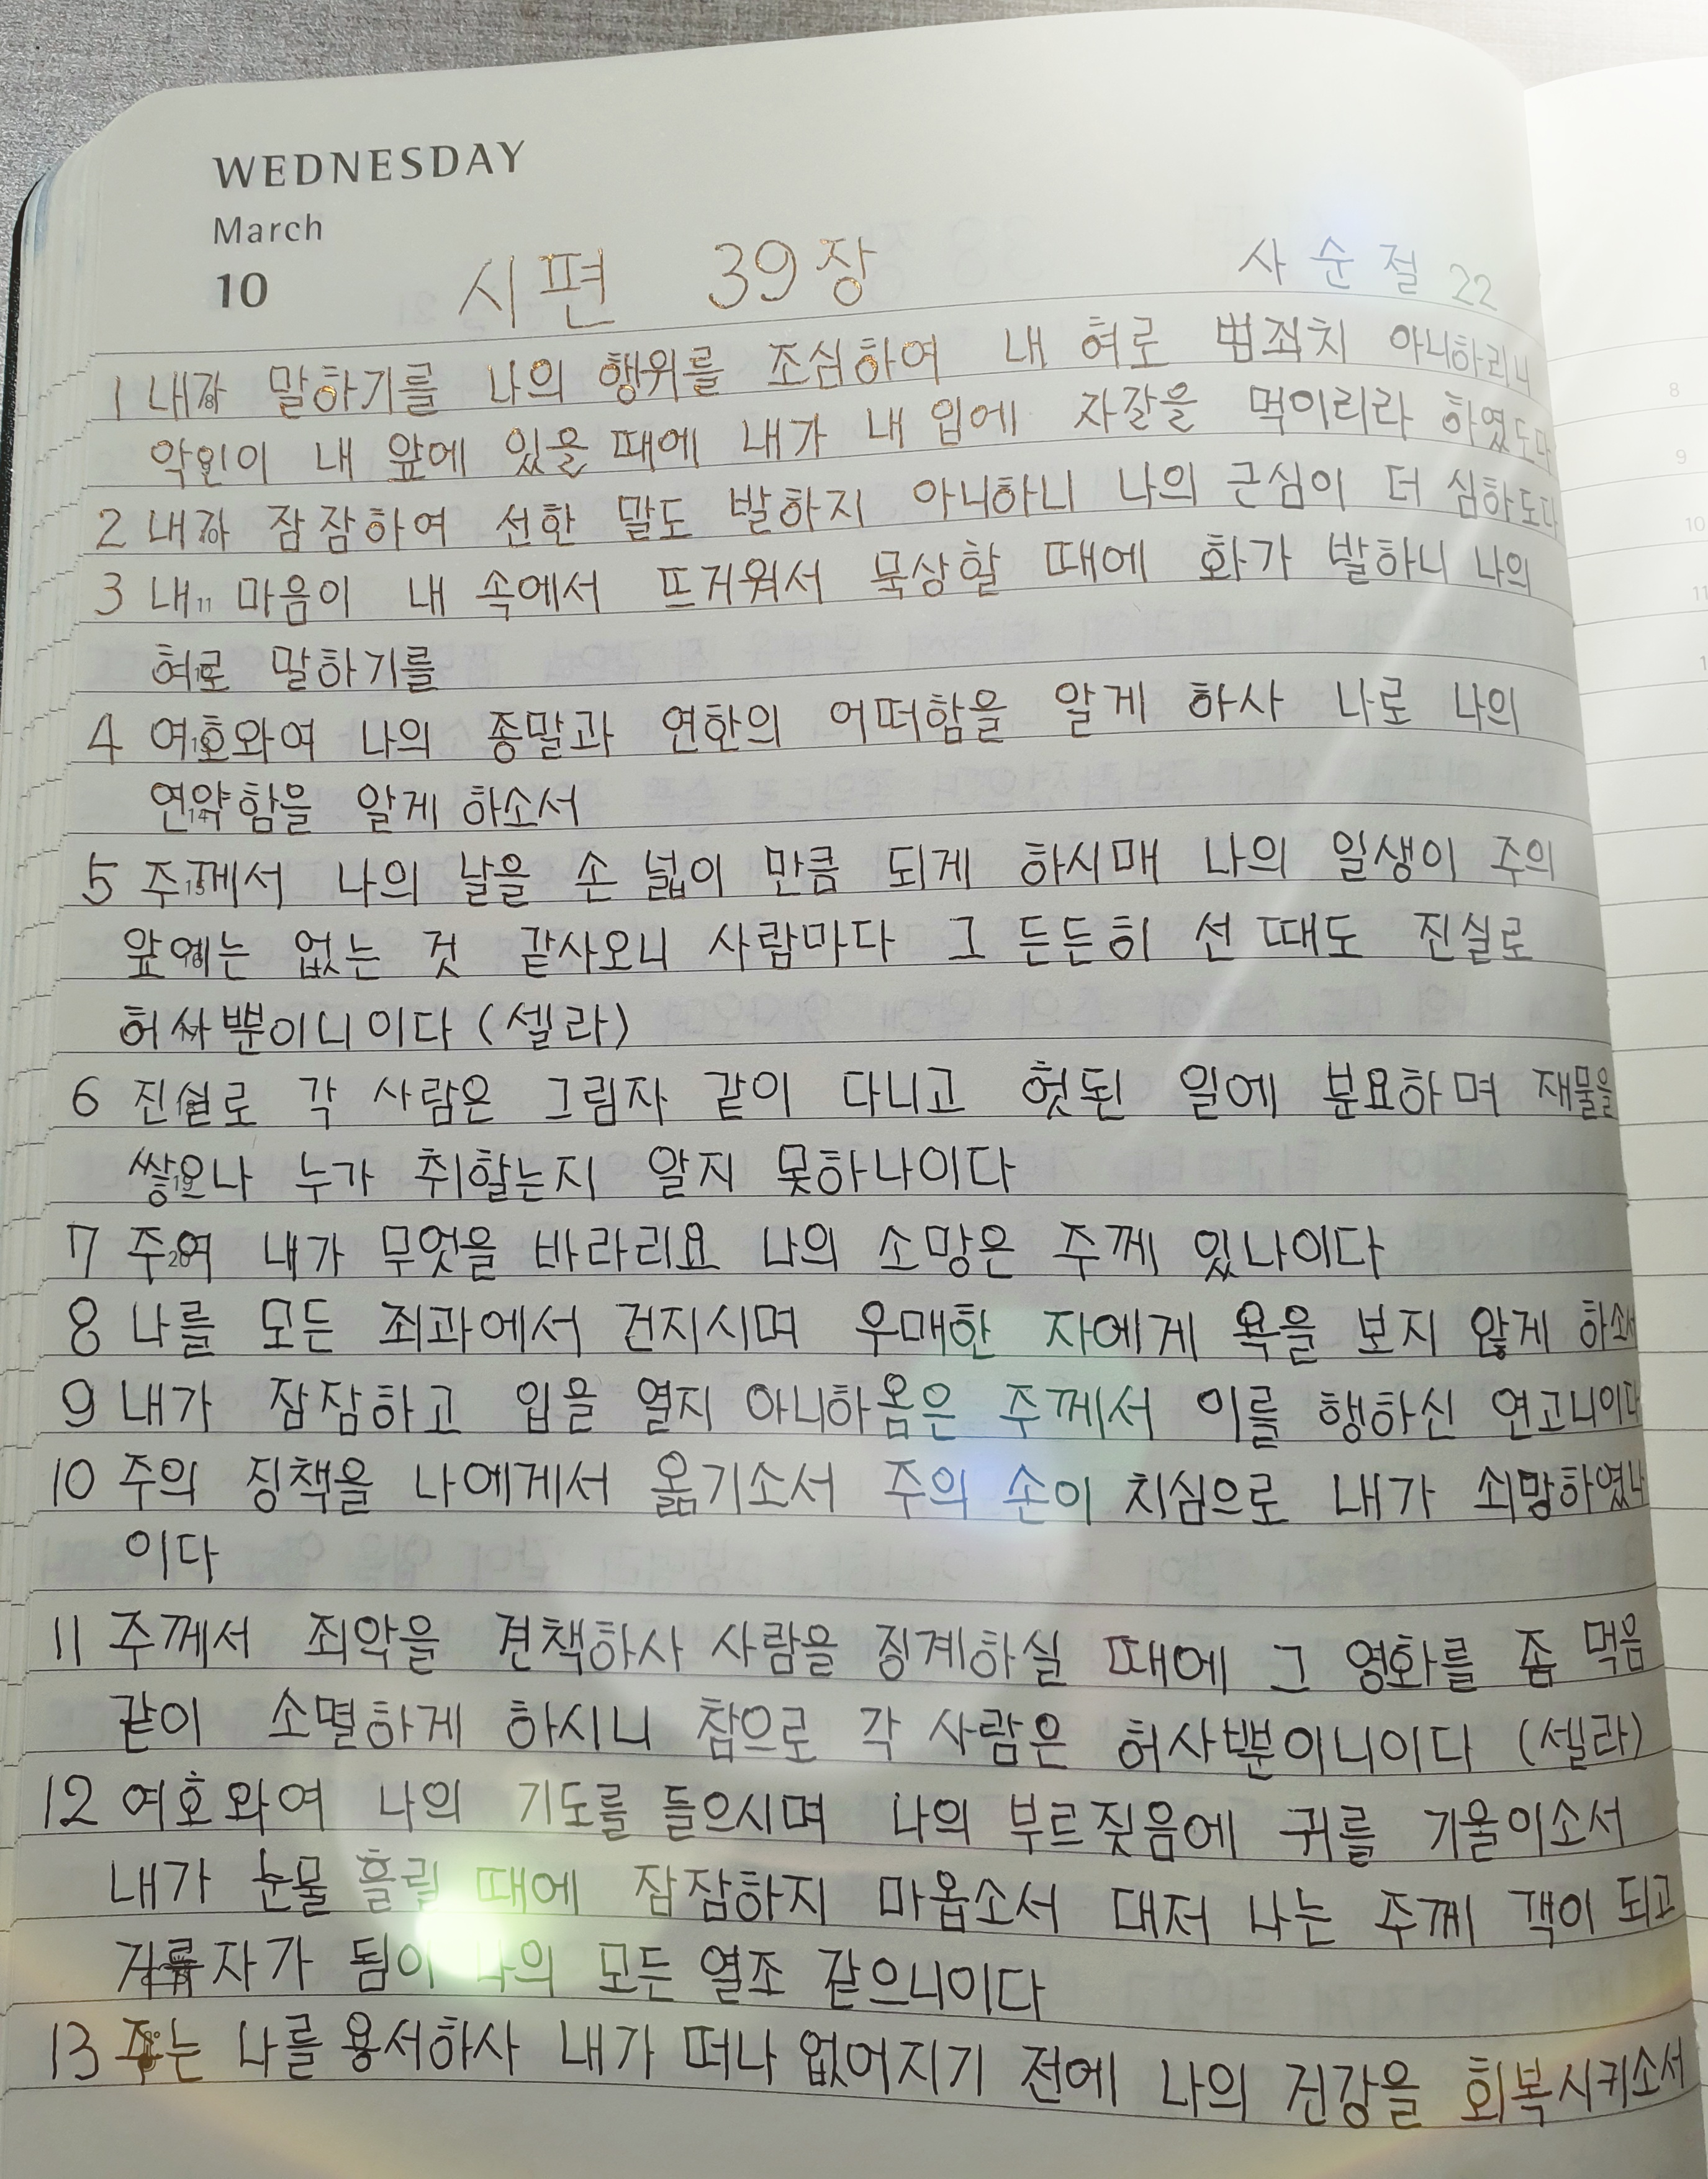 WEDNESDAY
March
10
시편 39장 사순절 22
1 내가 말하기를 나의 행위를 조심하여 내 혀로 범죄치 아니하리니
악인이 내 앞에 있을 때에 내가 내 입에 자갈을 먹이리라 하였도다
2 내가 잠잠하여 선한 말도 발하지 아니하니 나의 근심이 더 심하도다
3 내 마음이 내 속에서 뜨거워서 묵상할 때에 화가 발하니 나의
혀로 말하기를
4 여호와여 나의 종말과 연한의 어떠함을 알게 하사 나로 나의
연약함을 알게 하소서
5 주께서 나의 날을 손 넓이 만큼 되게 하시매 나의 일생이 주의
앞에는 없는 것 같사오니 사람마다 그 든든히 선 때도 진실로
허사뿐이니이다 (셀라)
6 진실로 각 사람은 그림자 같이 다니고 헛된 일에 분요하며 재물을
쌓으나 누가 취할는지 알지 못하나이다
7 주여 내가 무엇을 바라리요 나의 소망은 주께 있나이다
8 나를 모든 죄과에서 건지시며 우매한 자에게 욕을 보지 않게 하소서
9 내가 잠잠하고 입을 열지 아니하옴은 주께서 이를 행하신 연고니이다
10 주의 징책을 나에게서 옮기소서 주의 손이 치심으로 내가 쇠망하였나
이다
11 주께서 죄악을 견책하사 사람을 징계하실 때에 그 영화를 좀 먹음
같이 소멸하게 하시니 참으로 각 사람은 허사뿐이니이다 (셀라)
12 여호와여 나의 기도를 들으시며 나의 부르짖음에 귀를 기울이소서
내가 눈물 흘릴 때에 잠잠하지 마옵소서 대저 나는 주께 객이 되고
거류자가 됨이 나의 모든 열조 같으니이다
13 주는 나를 용서하사 내가 떠나 없어지기 전에 나의 건강을 회복시키소서
8
9
10
11